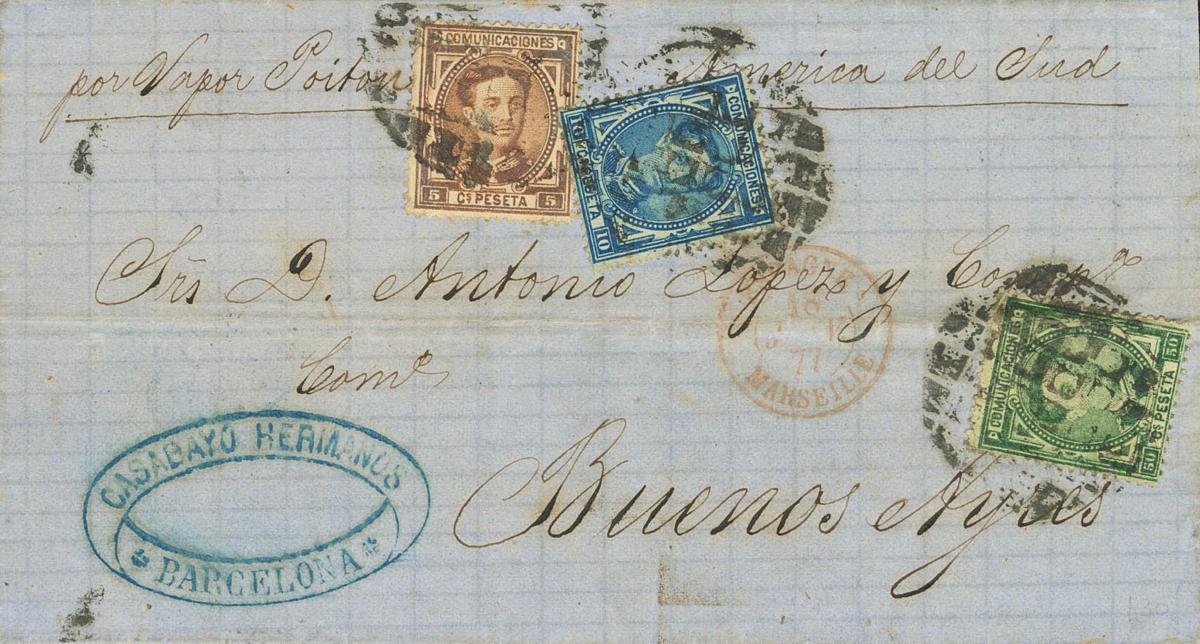 por Vapor Poitou America del Sud
COMUNICACIONES
5 Cs PESETA 5
COMUNICACIONES
10 Cs PESETA 10
Srs D. Antonio Lopez y Compa
Come
MARSEILLE
18
77
COMUNICACIONES
50 Cs PESETA 50
CASABAYO HERMANOS
BARCELONA
Buenos Ayres
130